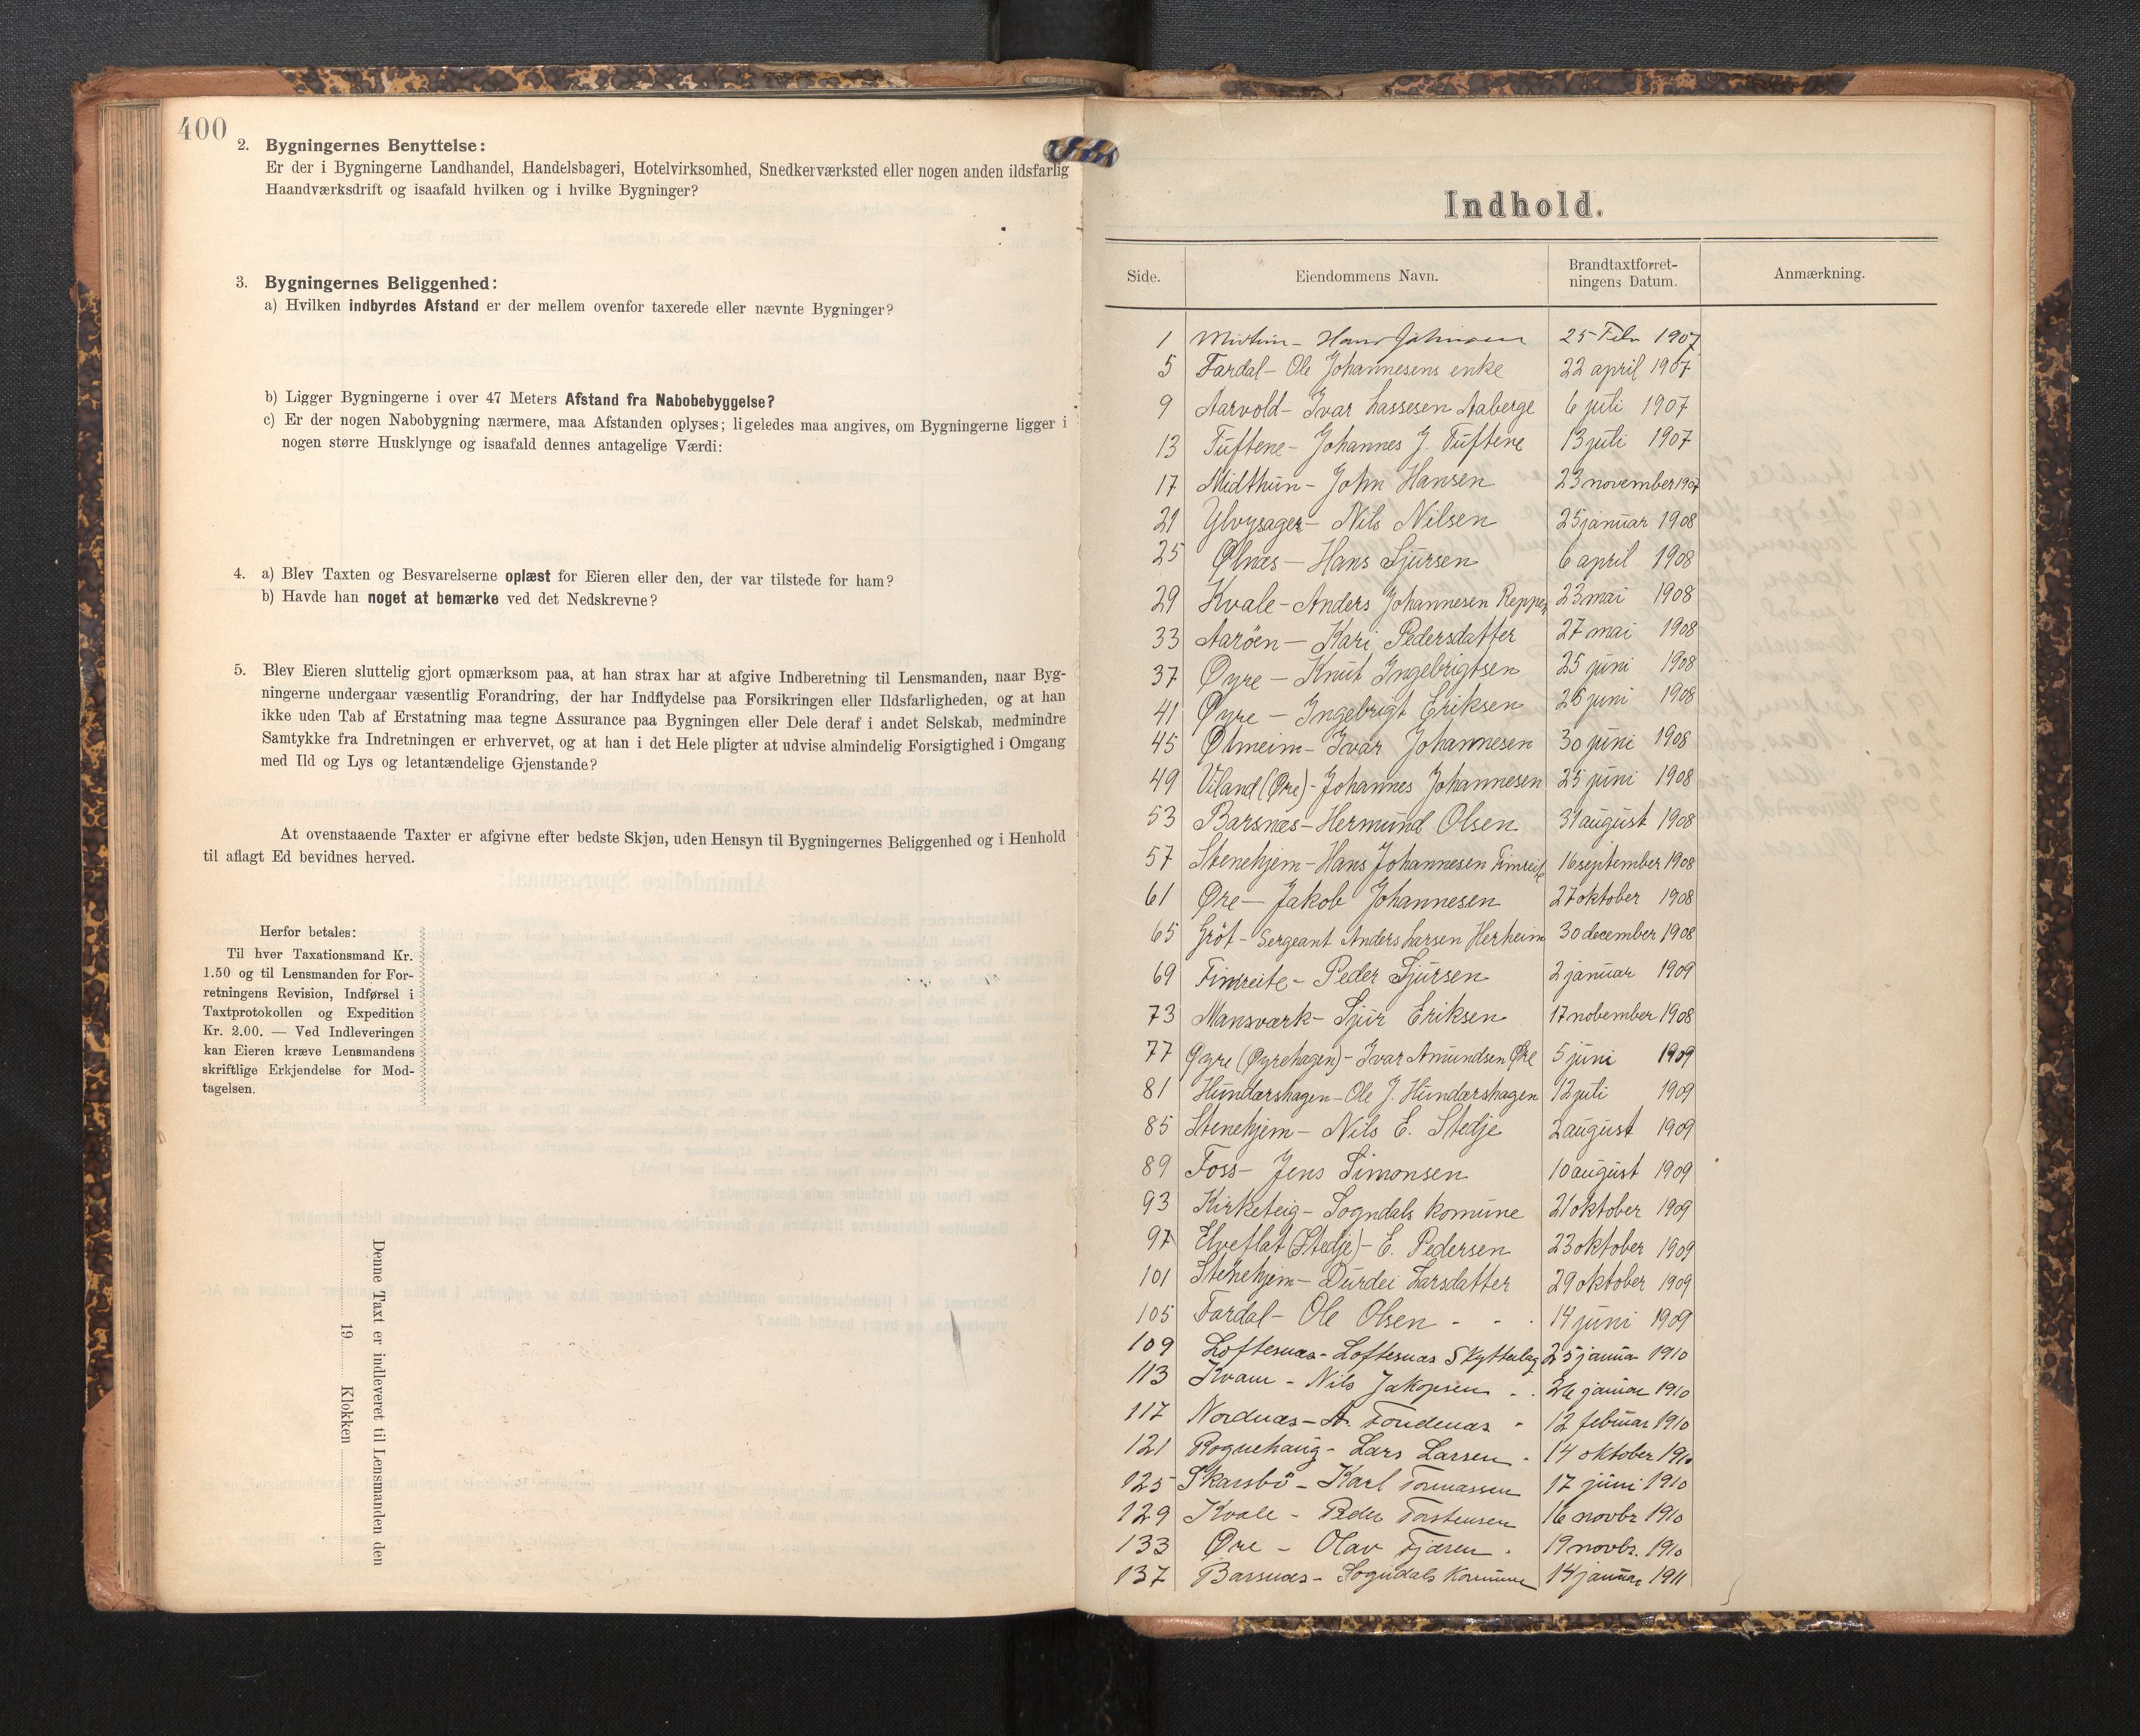 400
2. Bygningernes Benyttelse:
Er der i Bygningerne Landhandel, Handelsbageri, Hotelvirksomhed, Snedkerværksted eller nogen anden ildsfarlig
Haandværksdrift og isaafald hvilken og i hvilke Bygninger?
3. Bygningernes Beliggenhed:
a) Hvilken indbyrdes Afstand er der mellem ovenfor taxerede eller nævnte Bygninger?
b) Ligger Bygningerne i over 47 Meters Afstand fra Nabobebyggelse?
c) Er der nogen Nabobygning nærmere, maa Afstanden oplyses; ligeledes maa angives, om Bygningerne ligger i
nogen større Husklynge og isaafald dennes antagelige Værdi:
4. a) Blev Taxten og Besvarelserne oplæst for Eieren eller den, der var tilstede for ham?
b) Havde han noget at bemærke ved det Nedskrevne?
5. Blev Eieren sluttelig gjort opmærksom paa, at han strax har at afgive Indberetning til Lensmanden, naar Byg-
ningerne undergaar væsentlig Forandring, der har Indflydelse paa Forsikringen eller Ildsfarligheden, og at han
ikke uden Tab af Erstatning maa tegne Assurance paa Bygningen eller Dele deraf i andet Selskab, medmindre
Samtykke fra Indretningen er erhvervet, og at han i det Hele pligter at udvise almindelig Forsigtighed i Omgang
med Ild og Lys og letantændelige Gjenstande?
At ovenstaaende Taxter er afgivne efter bedste Skjøn, uden Hensyn til Bygningernes Beliggenhed og i Henhold
til aflagt Ed bevidnes herved.
Herfor betales:
Til hver Taxationsmand Kr.
1.50 og til Lensmanden for For-
retningens Revision, Indførsel i
Taxtprotokollen og Expedition
Kr. 2.00. — Ved Indleveringen
kan Eieren kræve Lensmandens
skriftlige Erkjendelse for Mod-
tagelsen.
Denne Taxt er indleveret til Lensmanden den
19 Klokken
Indhold.
Side. Eiendommens Navn. Brandtaxtforret-ningens Datum. Anmærkning.
1 Hans 25 Febr 1907
5 Fardal - Ole Johannesens enke 22 april 1907
9 Aarvold - Ivar Lassesen Aaberge 6 juli 1907
13 Tuftene - Johannes J. Tuftene 13 juli 1907
17 Midthun - John Hansen 23 november 1907
21 Ylvysager - Nils Nilsen 25 januar 1908
25 Ølnæs - Hans Sjursen 6 april 1908
29 Kvale - Anders Johannesen Reppen 23 mai 1908
33 Aarøen - Kari Pedersdatter 27 mai 1908
37 Øyre - Knut Ingebrigtsen 25 juni 1908
41 Øyre - Ingebrigt Eriksen 26 juni 1908
45 Ølmeim - Ivar Johannesen 30 juni 1908
49 Viland (Øre) - Johannes Johannesen 25 juni 1908
53 Barsnæs - Hermund Olsen 31 august 1908
57 Stenehjem - Hans Johannesen Fimreite 16 september 1908
61 Øre - Jakob Johannesen 27 oktober 1908
65 Grøt - Sergeant Anders Larsen Herheim 30 december 1908
69 Fimreite - Peder Sjursen 2 januar 1909
73 Mansværk - Sjur Eriksen 17 november 1908
77 Øyre (Øyrehagen) - Ivar Amundsen Øre 5 juni 1909
81 Hundarshagen - Ole J. Hundarshagen 12 juli 1909
85 Stenehjem - Nils E. Stedje 2 august 1909
89 Foss - Jens Simonsen 10 august 1909
93 Kirketeig - Sogndals komune 21 oktober 1909
97 Elveflat (Stedje) - E. Pedersen 23 oktober 1909
101 Stenehjem - Durdei Larsdatter 29 oktober 1909
105 Fardal - Ole Olsen - - . 14 juni 1909
109 Loftesnæs - Loftesnæs Skytterlag 25 januar 1910
113 Kvam - Nils Jakopsen - . 26 januar 1910
117 Nordnæs - A. - 12 februar 1910
121 Rognehaug - Lars Larsen . 14 oktober 1910
125 Skarsbø - Karl Tomassen 17 juni 1910
129 Kvale - Peder Torstensen 16 novbr 1910
133 Øre - Olav . 19 novbr. 1910
137 Barsnæs - Sogndals Kommune 14 januar 1911